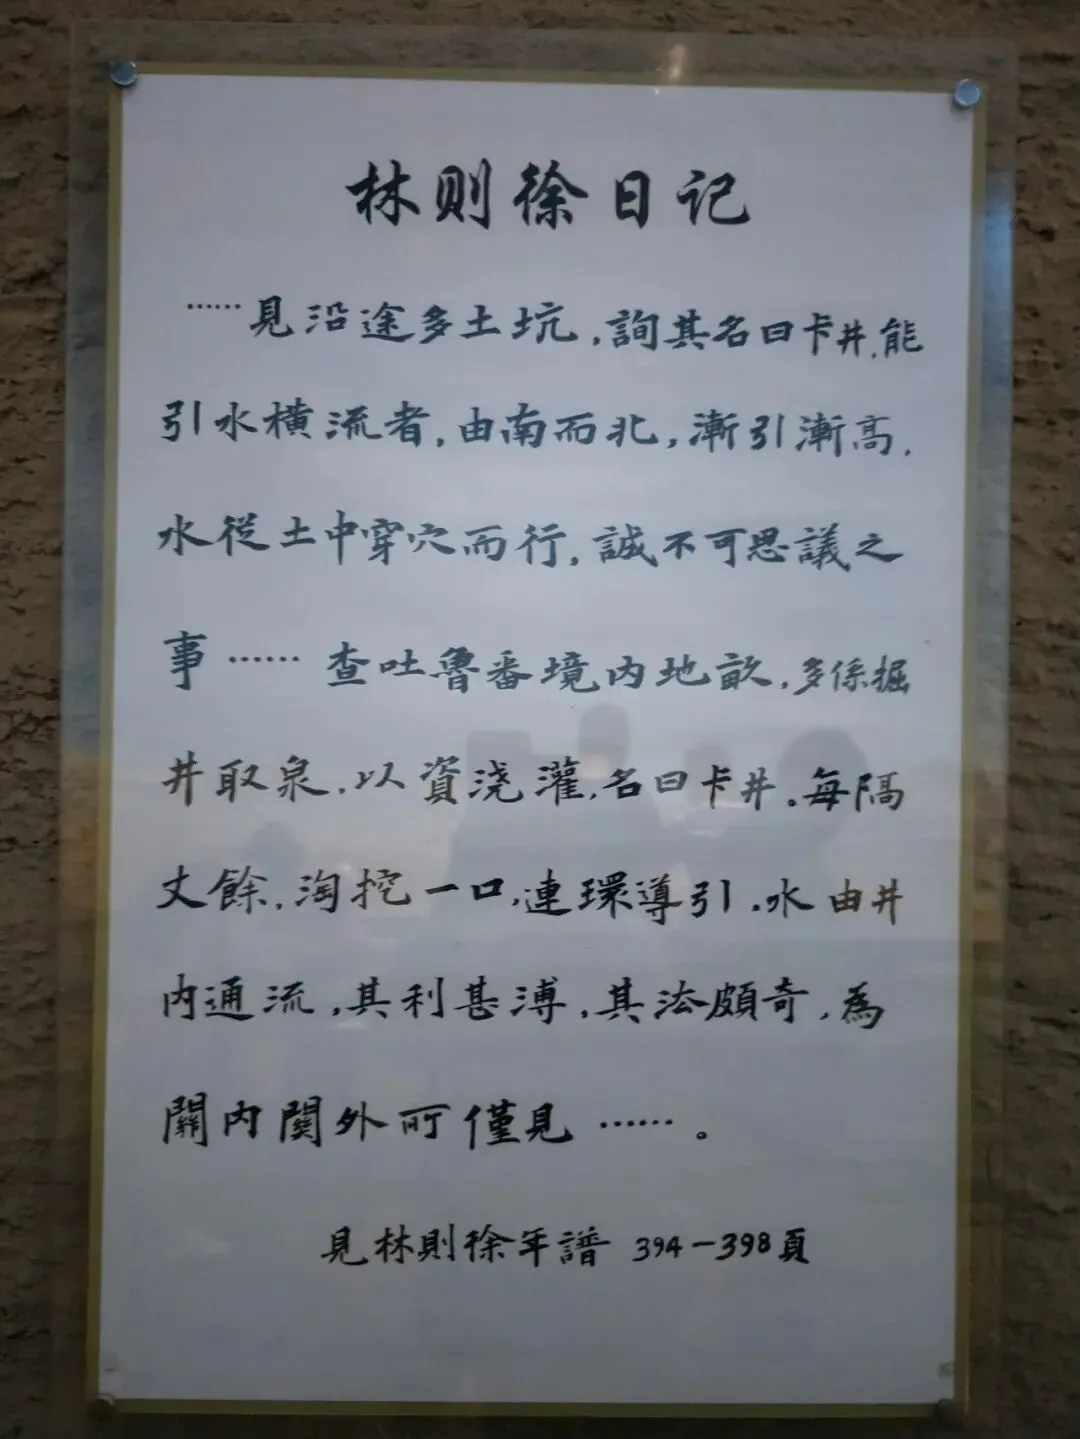 林则徐日记
……見沿途多土坑,詢其名曰卡井,能
引水横流者,由南而北,漸引漸高,
水從土中穿穴而行,誠不可思議之
事…… 查吐魯番境内地畝,多係掘
井取泉,以資浇灌,名曰卡井。每隔
丈餘,淘挖一口,連環導引,水由井
内通流,其利甚溥,其法頗奇,為
關内関外所僅見……。
見林則徐年譜 394-398頁